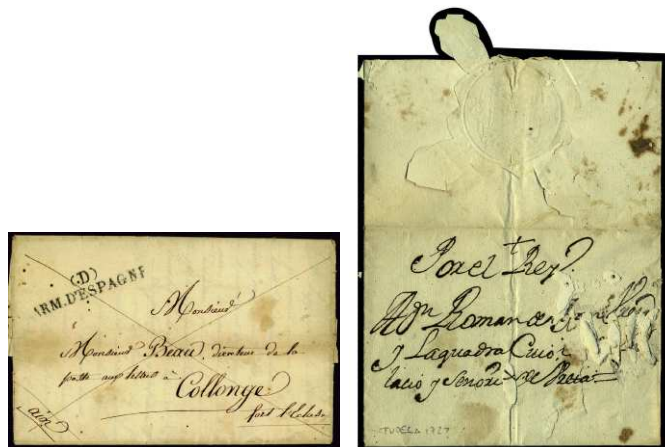 (D)
ARM.D'ESPAGNE
Monsieur
Monsieur Beau, directeur de la
poste aux lettres à
Collonge
fort l'Ecluse
ain
Por el Rey
A Dn Roman de
y Laquadra
y Señorio de
TUDELA 1727